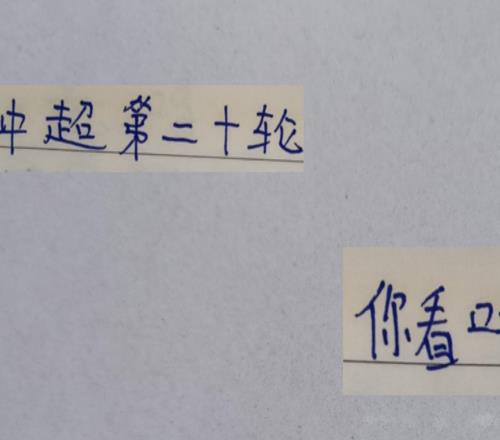 中超第二十轮
你看